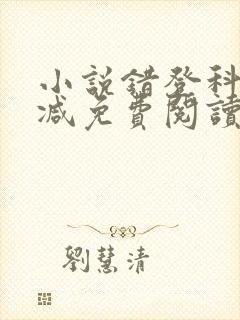 小說錯登科
減免費閱讀
劉慧清